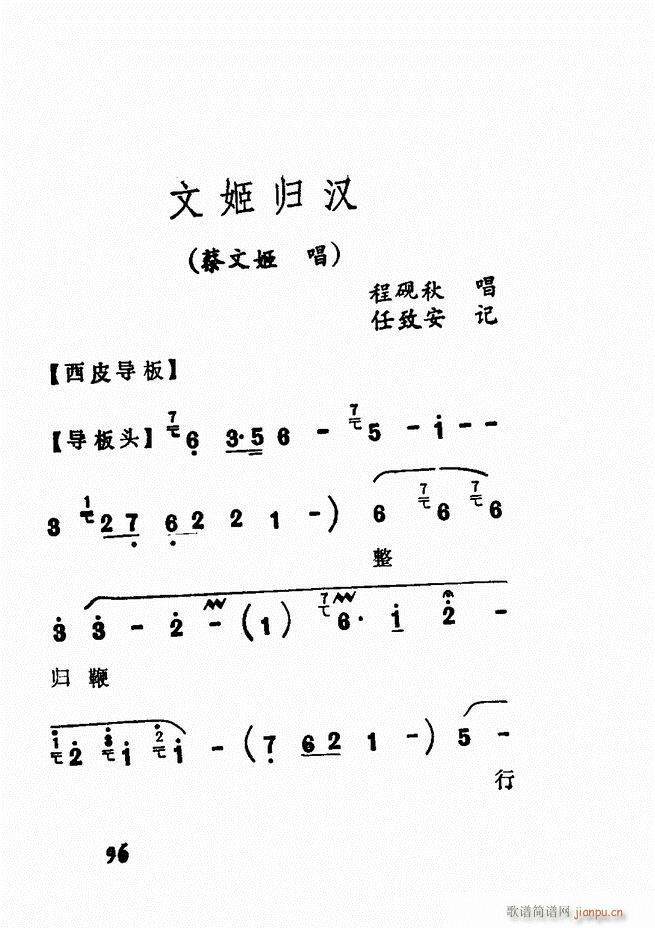 文姬归汉
(蔡文姬 唱)
程砚秋 唱
任致安 记
【西皮导板】
【导板头】 7 6 3·5 6 - 7 5 - i - -
3 1 2 7 6 2 2 1 -) 6 7 6 7 6
整
3 3 - 2 - (1) 7 6· i 2 -
归 鞭
1 2 3 i 2 i - (7 6 2 1 -) 5 -
行
96
歌谱简谱网 jianpu.cn